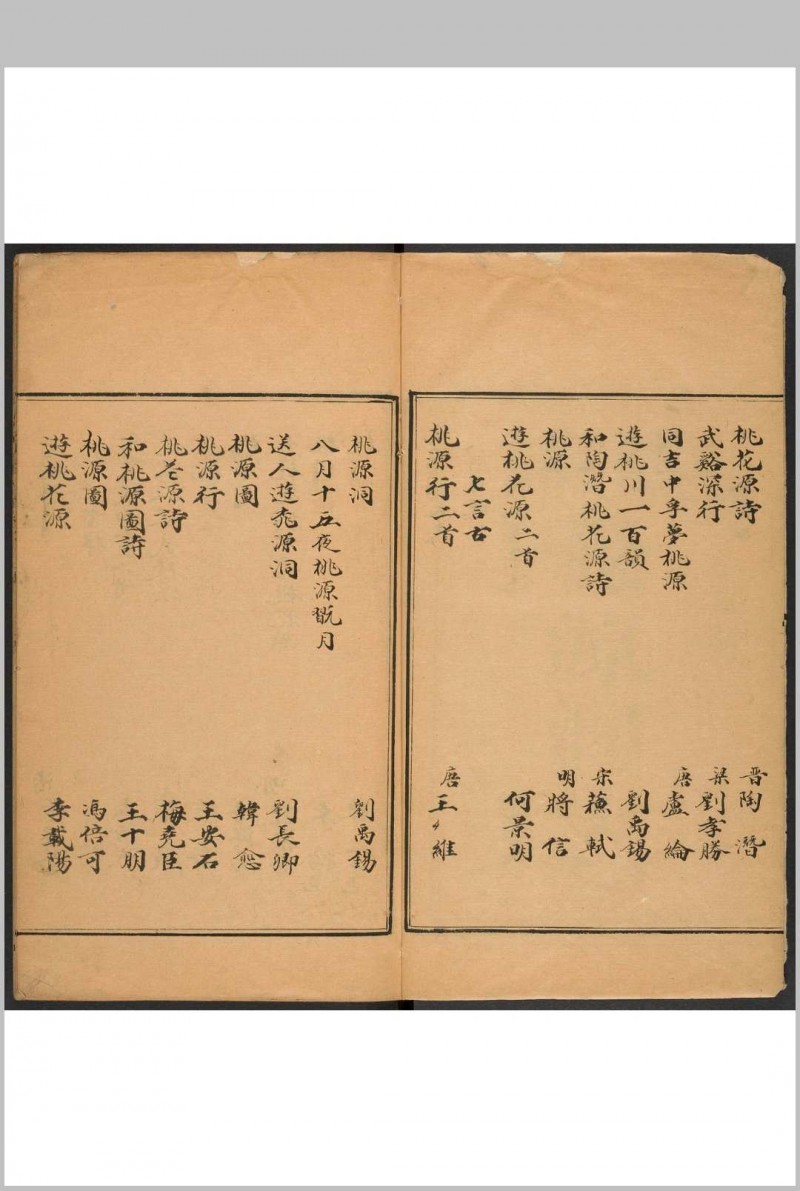 桃花源詩 晋陶潛
武谿深行 梁劉孝勝
同吉中孚夢桃源 唐盧綸
遊桃川一百韻 劉禹錫
和陶潛桃花源詩 宋蘓軾
桃源 明將信
遊桃花源二首 何景明
七言古
桃源行二首 唐王維
桃源洞 劉禹錫
八月十五夜桃源翫月
送人遊桃源洞 劉長卿
桃源圖 韓愈
桃源行 王安石
桃花源詩 梅堯臣
和桃源圖詩 王十朋
桃源圖 馮倍可
遊桃花源 李載陽